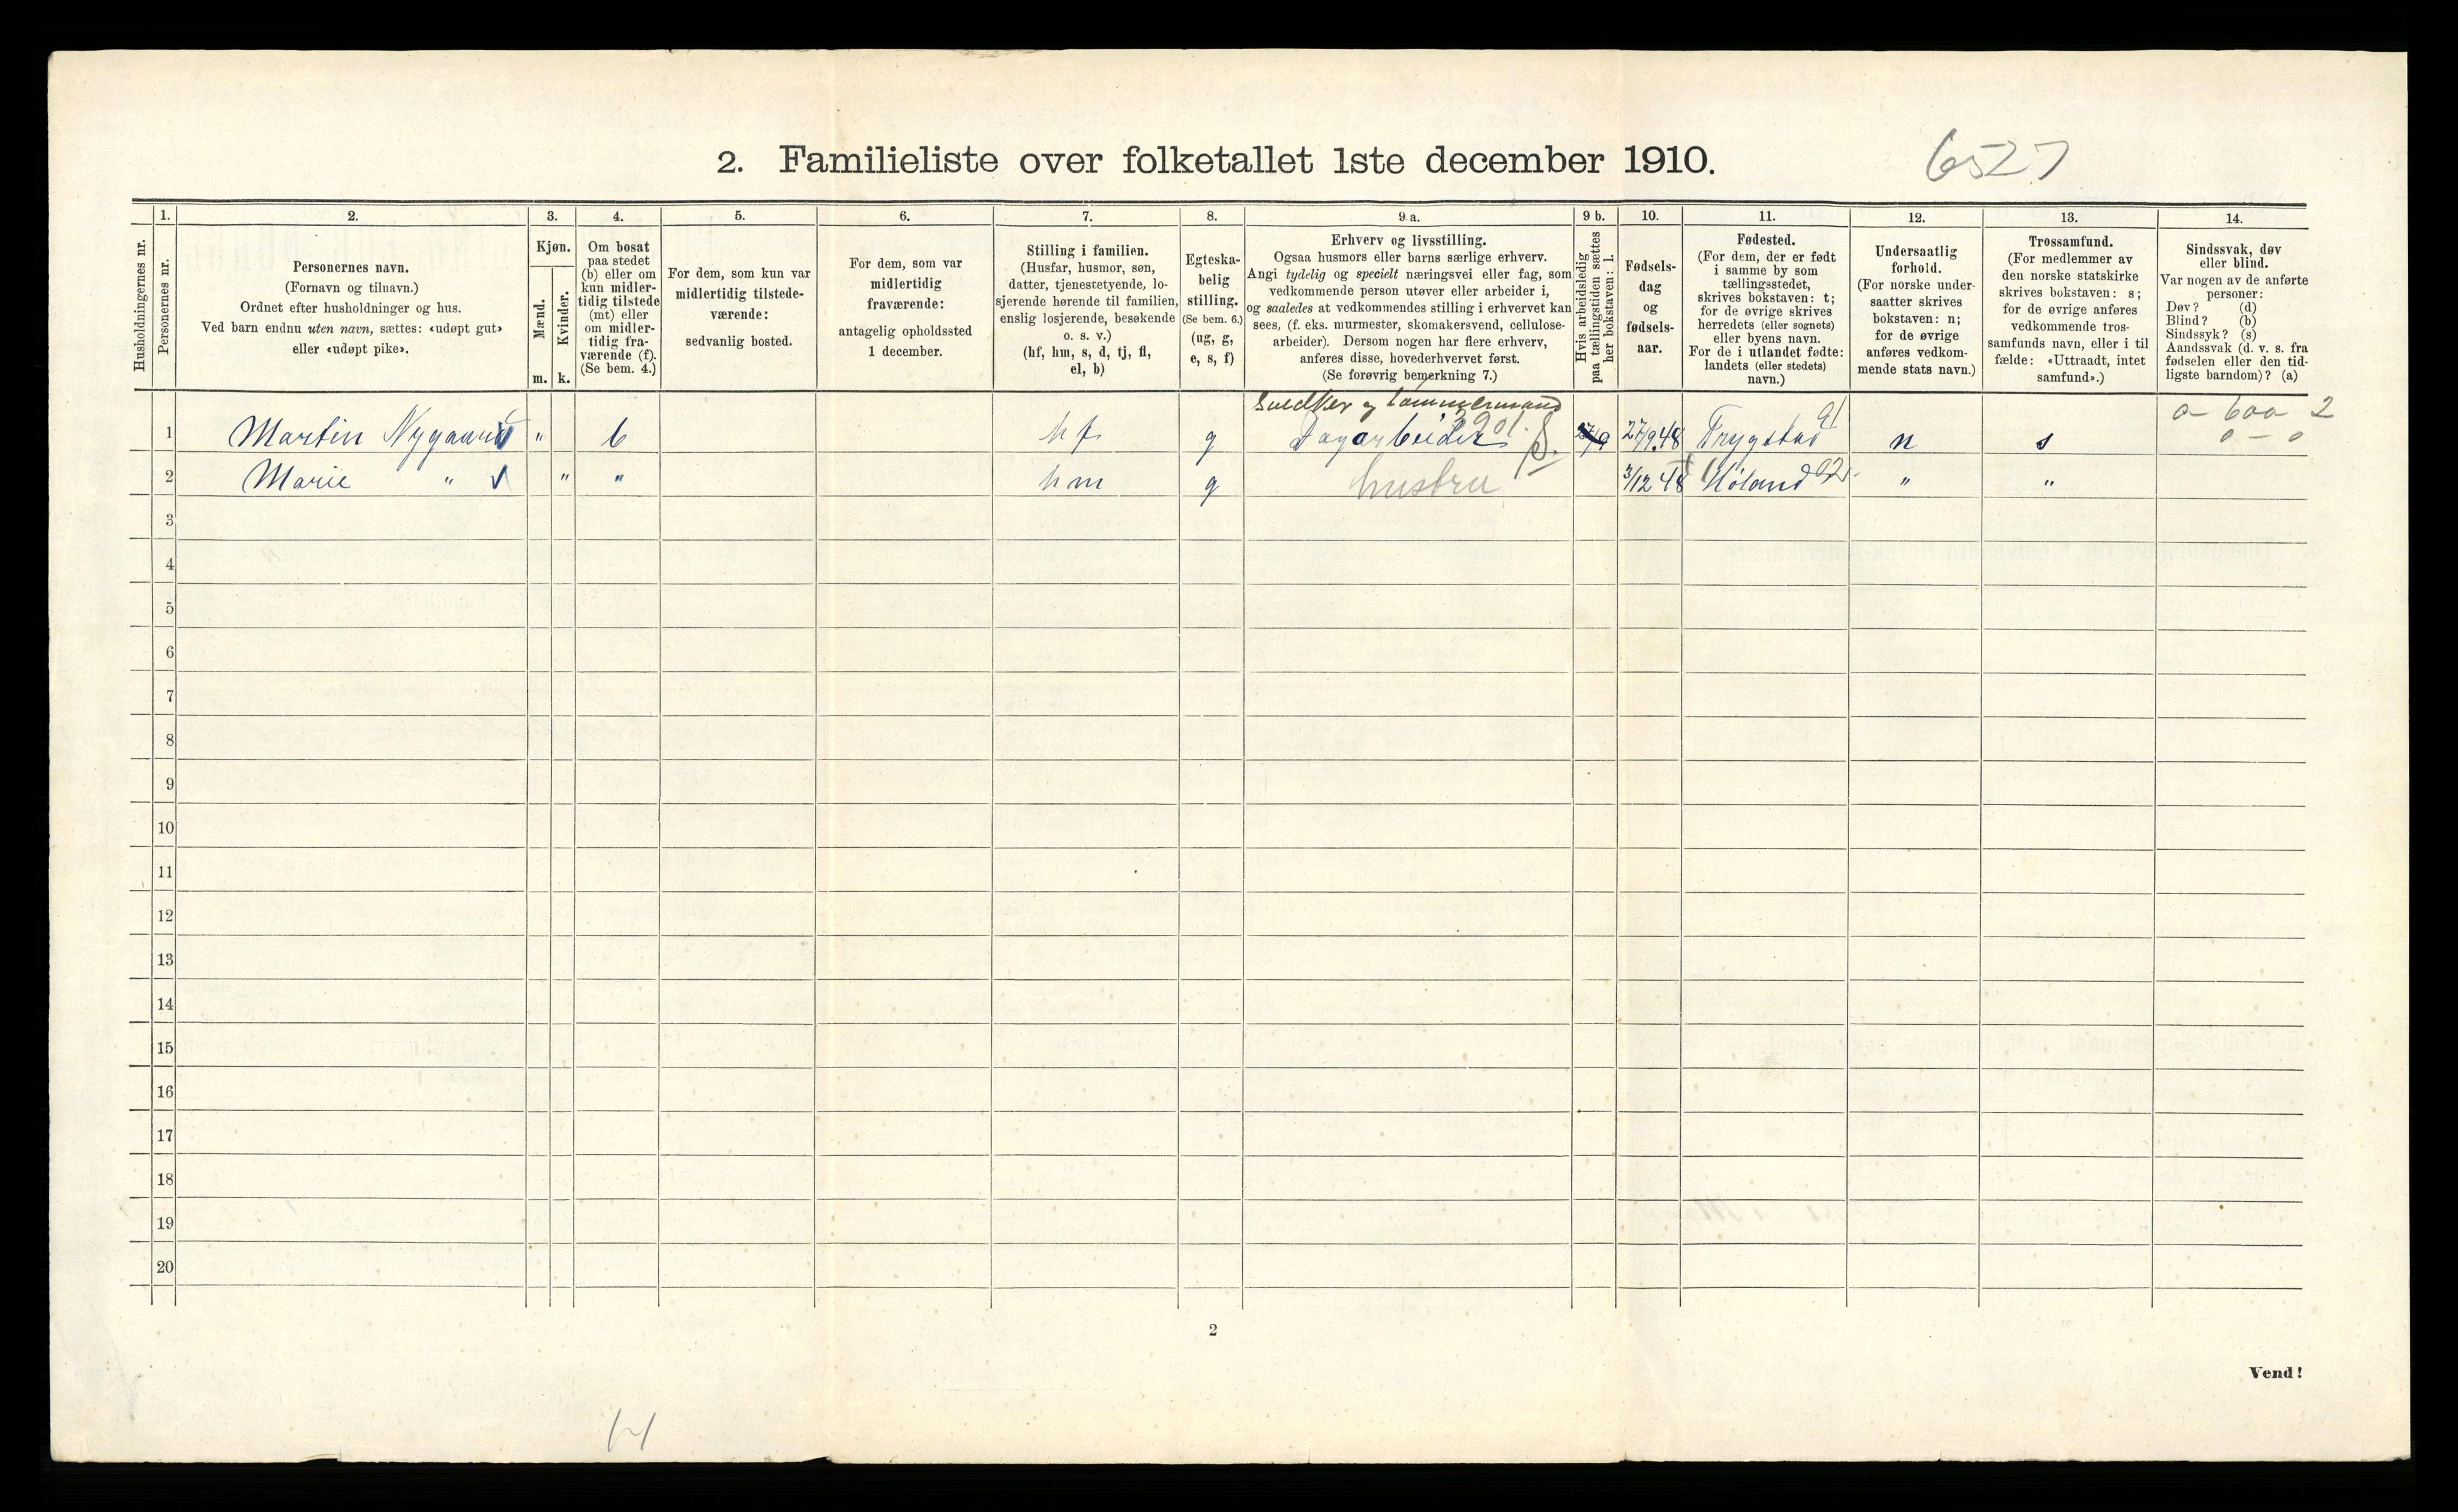 2. Familieliste over folketallet 1ste december 1910.
6527
Husholdningernes nr.
1.
Personernes nr.
2.
Personernes navn.
(Fornavn og tilnavn.)
Ordnet efter husholdninger og hus.
Ved barn endnu uten navn, sættes: «udøpt gut»
eller «udøpt pike».
3.
Kjøn.
Mænd.
Kvinder.
m. k.
4.
Om bosat
paa stedet
(b) eller om
kun midler-
tidig tilstede
(mt) eller
om midler-
tidig fra-
værende (f).
(Se bem. 4.)
5.
For dem, som kun var
midlertidig tilstede-
værende:
sedvanlig bosted.
6.
For dem, som var
midlertidig
fraværende:
antagelig opholdssted
1 december.
7.
Stilling i familien.
(Husfar, husmor, søn,
datter, tjenestetyende, lo-
sjerende hørende til familien,
enslig losjerende, besøkende
o. s. v.)
(hf, hm, s, d, tj, fl,
el, b)
8.
Egteska-
belig
stilling.
(Se bem. 6.)
(ug, g,
e, s, f)
9 a.
Erhverv og livsstilling.
Ogsaa husmors eller barns særlige erhverv.
Angi tydelig og specielt næringsvei eller fag, som
vedkommende person utøver eller arbeider i,
og saaledes at vedkommendes stilling i erhvervet kan
sees, (f. eks. murmester, skomakersvend, cellulose-
arbeider). Dersom nogen har flere erhverv,
anføres disse, hovederhvervet først.
(Se forøvrig bemerkning 7.)
9 b.
Hvis arbeidsledig
paa tællingstiden sættes
her bokstaven: l.
10.
Fødsels-
dag
og
fødsels-
aar.
11.
Fødested.
(For dem, der er født
i samme by som
tællingsstedet,
skrives bokstaven: t;
for de øvrige skrives
herredets (eller sognets)
eller byens navn.
For de i utlandet fødte:
landets (eller stedets)
navn.)
12.
Undersaatlig
forhold.
(For norske under-
saatter skrives
bokstaven: n;
for de øvrige
anføres vedkom-
mende stats navn.)
13.
Trossamfund.
(For medlemmer av
den norske statskirke
skrives bokstaven: s;
for de øvrige anføres
vedkommende tros-
samfunds navn, eller i til
fælde: «Uttraadt, intet
samfund».)
14.
Sindssvak, døv
eller blind.
Var nogen av de anførte
personer:
Døv? (d)
Blind? (b)
Sindssyk? (s)
Aandssvak (d. v. s. fra
fødselen eller den tid-
ligste barndom)? (a)
Snedker og tømmermand
1 Martin Nygaard " b hf g Dagarbeider 3901. 27/9 48 Trygstad 91 n s
2 Marie " " " hm g hustru 3/12 48 Høland 92 " "
3
4
5
6
7
8
9
10
11
12
13
14
15
16
17
18
19
20
2
Vend!